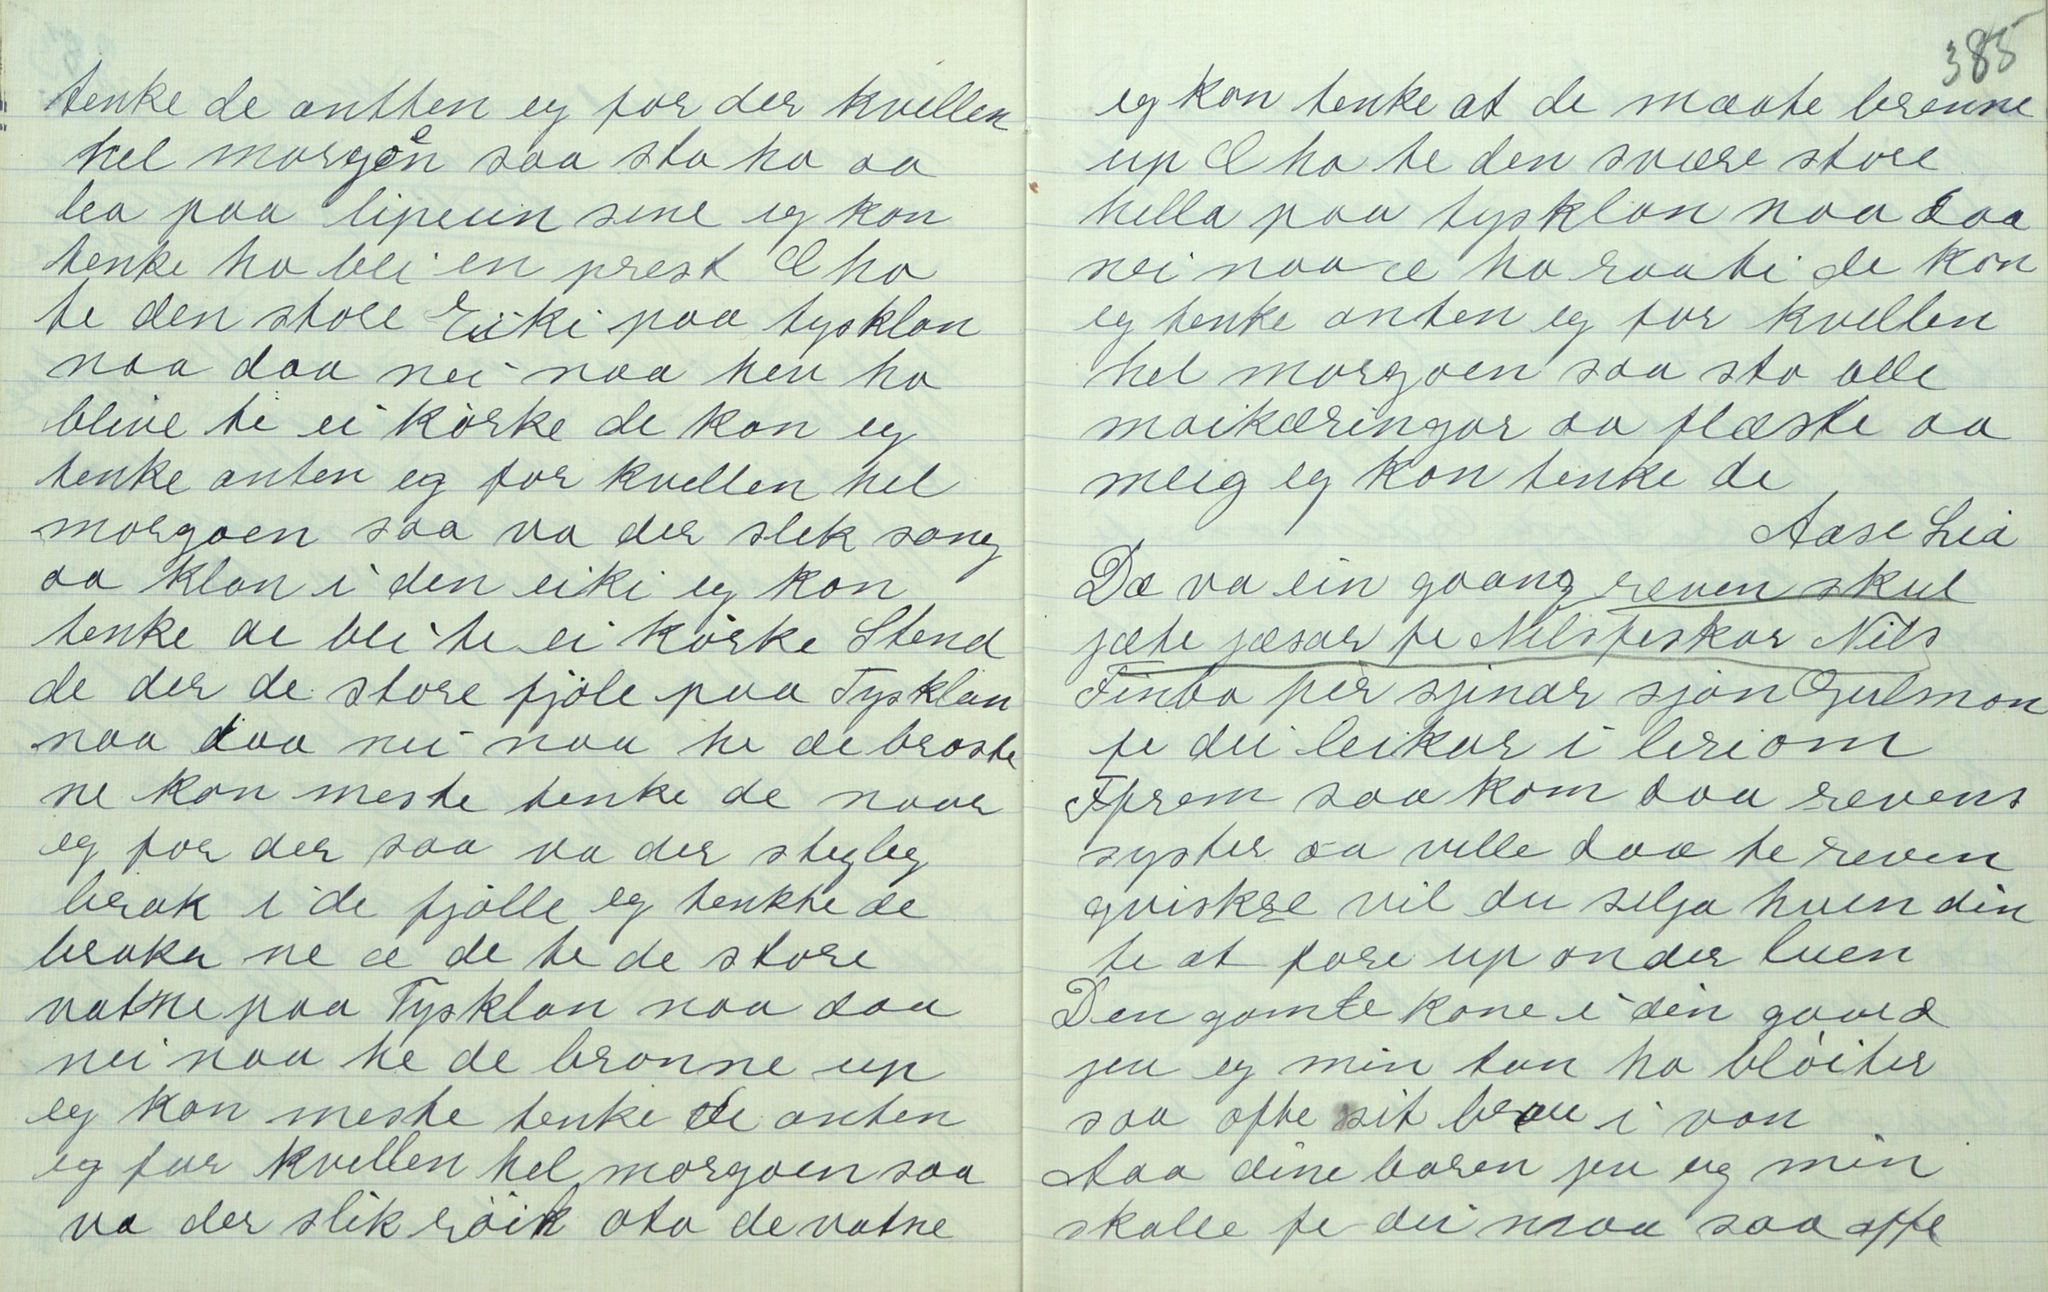 tenke de antten eg for der kvellen
hel morgen saa sto ho aa
lea paa lipeun sine eg kon
tenke ho blei en prest E ho
te den store Eiki paa tysklan
naa daa nei naa hen ho
blive te ei kørke de kon eg
tenke anten eg for kvellen hel
morgoen saa va der slek song
aa klan i den eiki eg kon
tenke de blei te ei kørke Stend
de der de store fjøle paa Tysklan
naa daa nei naa he de broste
ne kon meste tenke de naar
eg for der saa va der stygleg
brak i de fjølle eg tenkte de
braka ne æ de te de store
vatne paa Tysklan naa daa
nei naa he de bronne up
eg kon meste tenke de anten
eg for kvellen hel morgoen saa
va der slik røik ota de vatne
385
eg kon tenke at de maate brenne
up E ho te den svære store
hella paa tysklan naa daa
nei naa æ ho raati de kon
eg tenke anten eg for kvellen
hel morgoen saa sto alle
maikæringar aa flæste aa
meig eg kon tenke de
Aase Lia
Dæ va ein gaang reven skul
jæte jæsar fe Nilsfeskar Nils
Finbo per sjinar sjøn Gulmon
fe dei leikar i leriom
Fprem saa kom daa revens
syster aa ville daa te reven
qviskre vil du selja huen din
te at fore up onder luen
Den gamle kone i din gaard
jeu eg min tan ho bløiter
saa ofte sit brau i van
Aaa dine baren jeu eg min
skalle fe dei maa saa offe